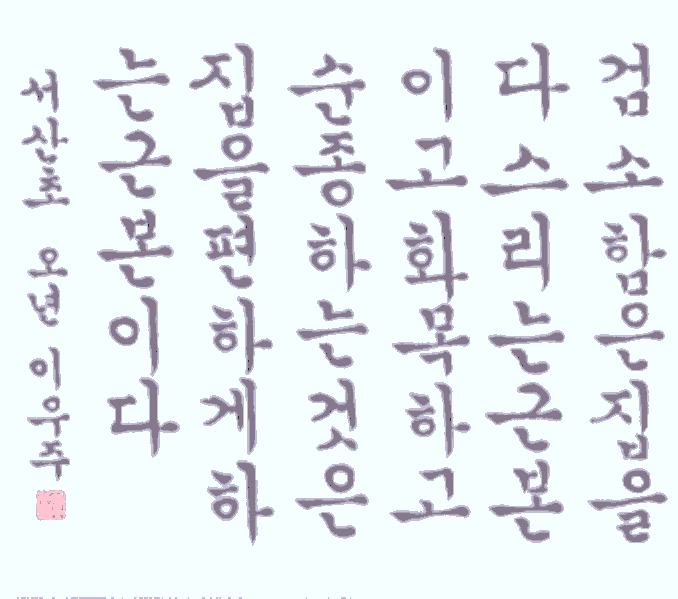 검소함은집을
다스리는근본
이고화목하고
순종하는것은
집을편하게하
는근본이다
서산초 오년 이우주